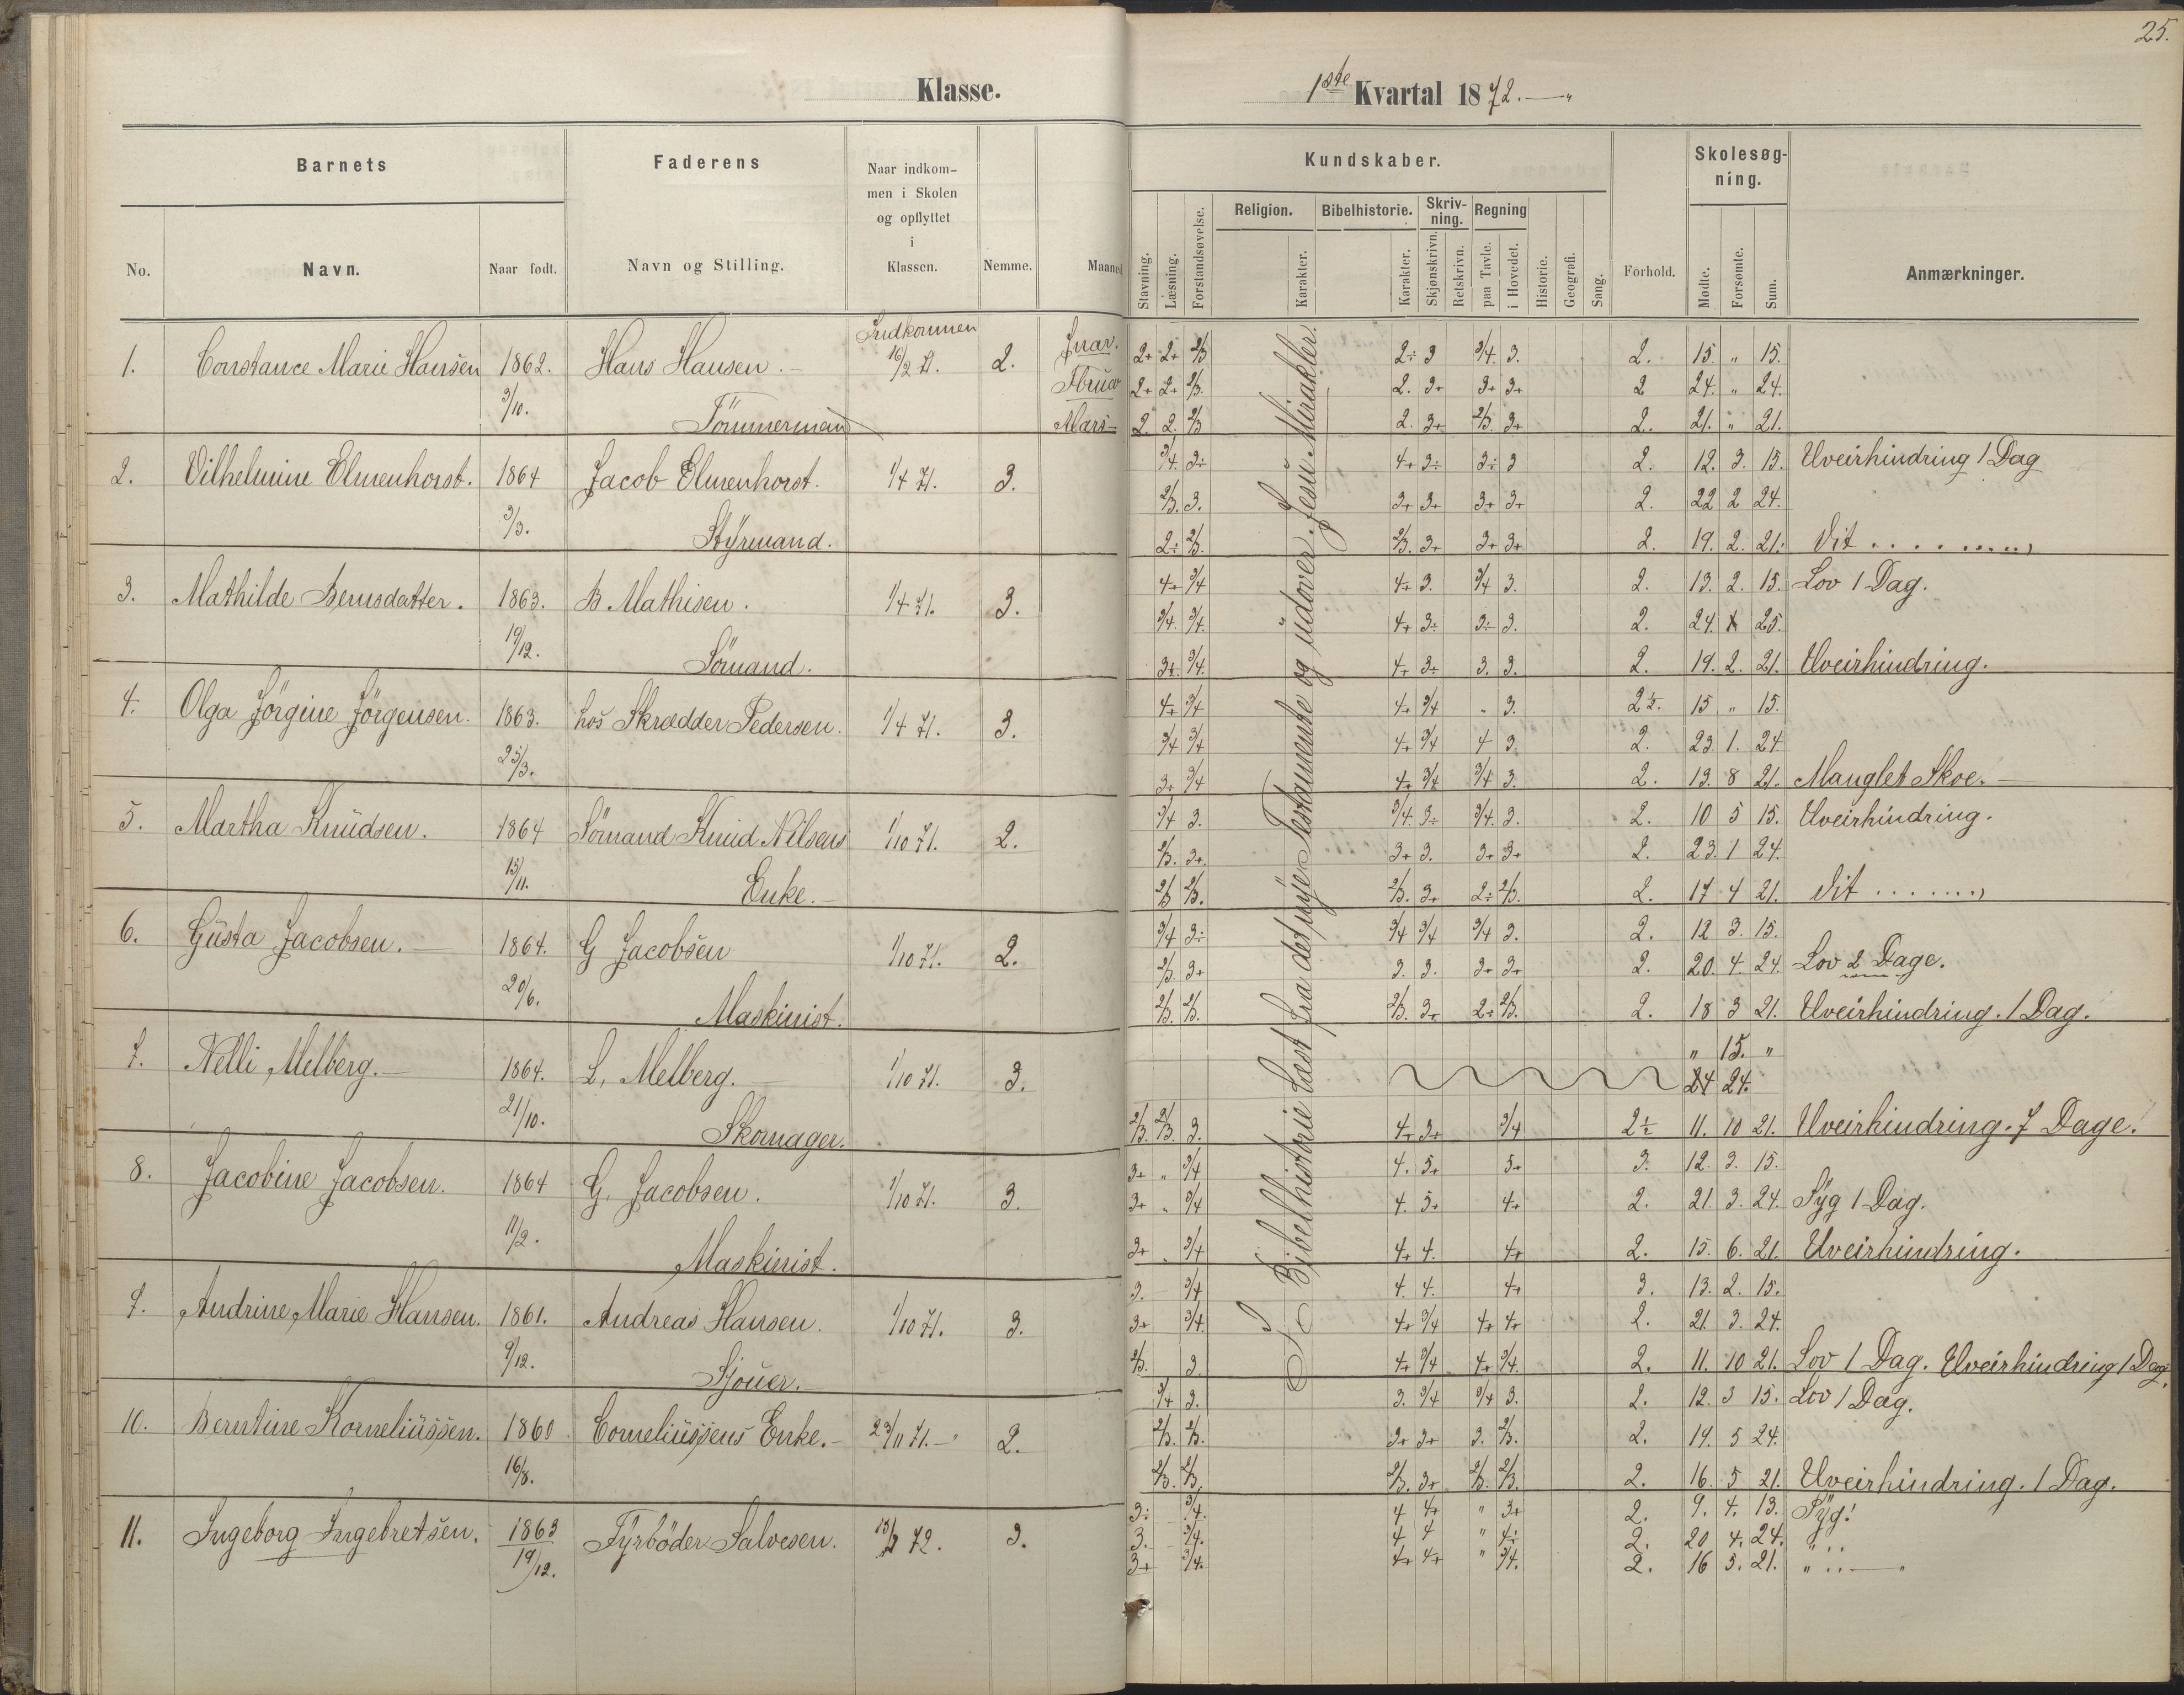 25.
Klasse.
1ste Kvartal 1872.
Barnets
Faderens
Naar indkom-
men i Skolen
og opflyttet
i
Klassen.
Nemme.
Maaned
Kundskaber.
Skolesøg-
ning.
No.
Navn.
Naar født.
Navn og Stilling.
Stavning.
Læsning.
Forstandsøvelse.
Religion.
Karakter.
Bibelhistorie.
Karakter.
Skriv-
ning.
Skjønskrivn.
Retskrivn.
Regning
paa Tavle.
i Hovedet.
Historie.
Geografi.
Sang.
Forhold.
Mødte.
Forsømte.
Sum.
Anmærkninger.
Bibelhistorie læst fra det nye Testamente og udover. Jesu Mirakler.
1. Constance Marie Hansen 1862. 3/10. Hans Hansen. Tömmermand Indkommen 16/2 71. 2.
Jnar. 2+ 2+ 2/3 2÷ 3 3/4. 3. 2. 15. " 15.
Fbruar 2+ 2+ 2/3. 2. 3+ 3+ 3+ 2 24. " 24.
Mars 2 2. 2/3 2. 3+ 2/3. 3+ 2. 21. " 21.
2. Vilhelmine Elmenhorst. 1864 3/3. Jacob Elmenhorst. Styrmand. 1/4 71. 3.
3/4. 3÷ 4+ 3÷ 3÷ 3 2. 12. 3. 15. Uveirhindring 1 Dag
2/3. 3. 3+ 3+ 3+ 3+ 2. 22 2 24.
2÷ 2/3. 2/3. 3+ 3+ 3+ 2. 19. 2. 21. dit
3. Mathilde Bernsdatter. 1863. 19/12. B. Mathisen. Sömand. 1/4 71. 3.
4+ 3/4 4+ 3. 3/4 3. 2. 13. 2. 15. Lov 1 Dag.
3/4. 3/4. 4+ 3÷ 3÷ 3. 2. 24. 25.
3+ 3/4. 4+ 3÷ 3. 3. 2. 19. 2. 21. Uveirhindring.
4. Olga Jörgine Jörgensen. 1863. 25/3. hos Skrædder Pedersen. 1/4 71. 3.
4+ 3/4 4+ 3/4 - 3. 2½. 15 " 15.
3/4 3/4 4+ 3/4 4 3. 2. 23. 1. 24
3+ 3/4 4+ 3/4 3/4 3. 2. 13. 8 21. Manglet Skoe.
5. Martha Knudsen. 1864 15/11. Sömand Knud Nilsens Enke. 1/10 71. 2.
3/4 3. 3/4. 3÷ 3/4. 3. 2. 10 5 15. Uveirhindring.
2/3. 3+. 3+ 3. 3+ 3+ 2. 23. 1 24.
2/3 2/3. 2/3. 3+ 2÷ 2/3. 2. 17 4 21. dit
6. Gusta Jacobsen. 1864. 20/6. G Jacobsen Maskinist. 1/10 71. 2.
3/4 3÷ 3/4 3/4 3/4 3. 2. 12 3. 15.
2/3. 3+ 3. 3. 3+ 3+ 2. 20. 4. 24. Lov 2 Dage.
2/3. 2/3. 2/3. 3+ 2÷ 2/3. 2. 18 3 21. Uveirhindring. 1 Dag.
7. Nelli Melberg. 1864. 21/10. L. Melberg. Skomager. 1/10 71. 3.
" 15. "
24 24.
2/3. 2/3. 3. 4+ 3+ 3/4 2½ 11. 10 21. Uveirhindring. 7 Dage.
8. Jacobine Jacobsen. 1864 11/2. G. Jacobsen. Maskinist. 1/10 71. 3.
3+ " 3/4 4. 5+ 5+ 3. 12. 3. 15.
3+ " 3/4 4. 5+ 4+ 2. 21. 3. 24. Syg 1 Dag.
3+ 3/4 4+ 4. 4+ 2. 15. 6. 21. Uveirhindring.
9. Andrine Marie Hansen. 1861. 9/12. Andreas Hansen. Sjouer. 1/10 71. 3.
3. 3/4 4. 4. 4+ 3. 13. 2. 15.
3+ 3/4. 4+ 3/4 4+ 4+ 2. 21. 3. 24.
2/3. 3. 4+ 3/4 4+ 3/4. 2. 11. 10 21. Lov 1 Dag. Uveirhindring 1 Dag.
10. Berntine Korneliussen. 1860 16/8. Corneliussens Enke. 23/11 71. 2.
3/4 3. 3. 3/4 3/4 3. 2. 12. 3 15. Lov 1 Dag.
2/3. 2/3. 3+ 3+ 3. 2/3. 2. 19. 5 24.
2/3. 2/3. 2/3. 3+ 2/3. 2/3. 2. 16. 5 21. Uveirhindring. 1 Dag.
11. Ingeborg Ingebretsen. 1863 19/12. Fyrböder Salvesen. 72. 3.
3÷ 3/4. 4 4+ " 3+ 2. 9. 4. 13. Syg!
3. 3/4. 4 4 " 4÷ 2. 20 4. 24. "
3+ 3/4. 4+ 4+ " 3/4. 2. 16 5. 21. "